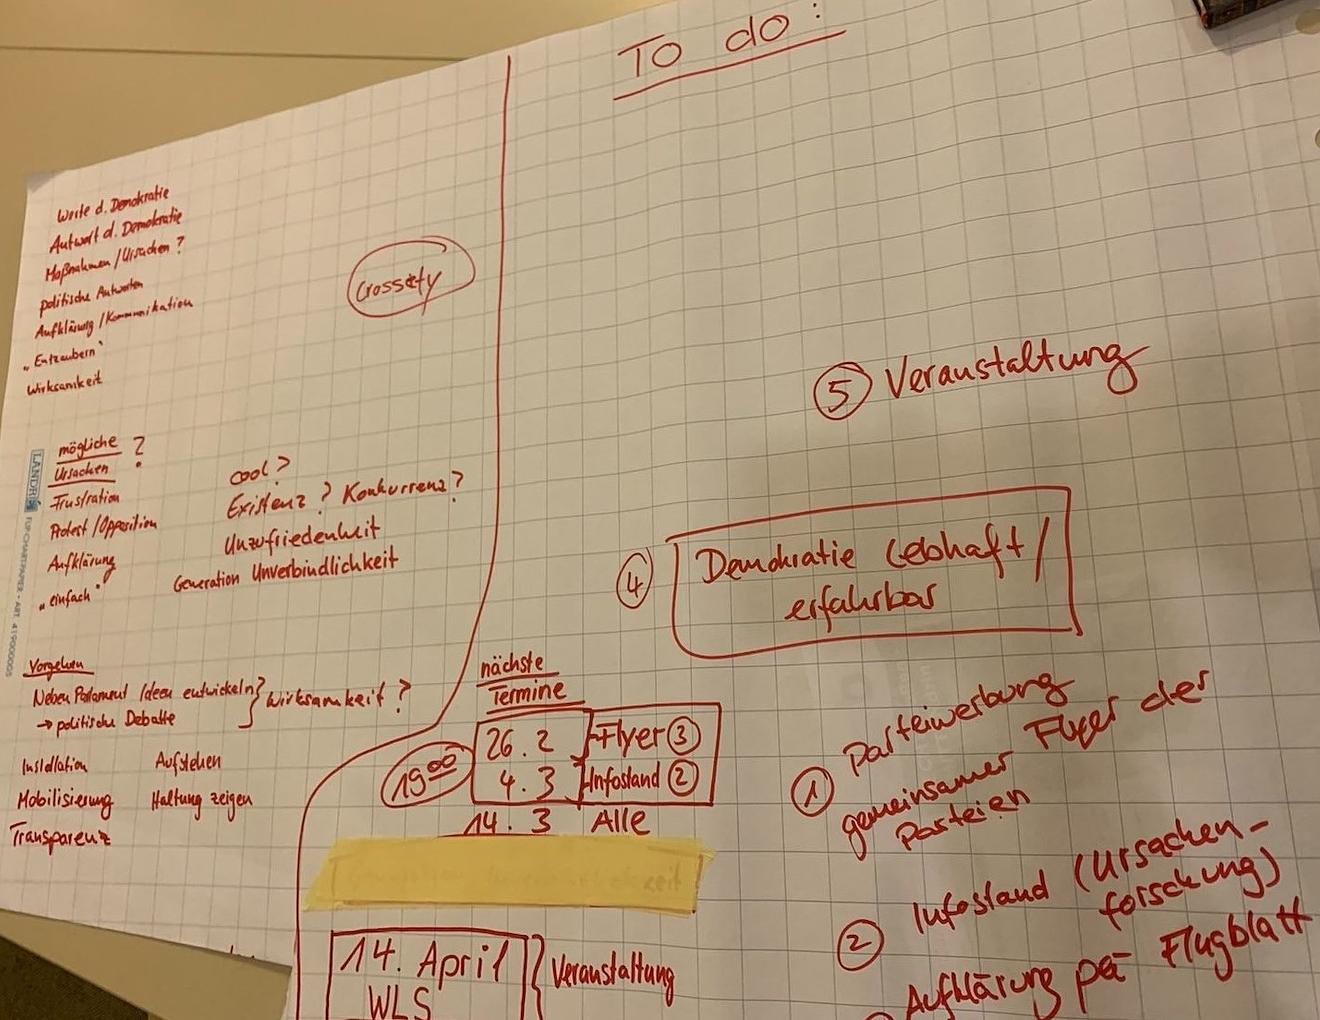 To do:
Werte d. Demokratie
Antwort d. Demokratie
Maßnahmen/Ursachen?
politische Antworten
Aufklärung/Kommunikation
„Entzaubern“
Wirksamkeit
mögliche
Ursachen ?
Frustration
Protest/Opposition
Aufklärung
„einfach“
cool?
Existenz? Konkurrenz?
Unzufriedenheit
Generation Unverbindlichkeit
LANDRÉ FLIPCHARTPAPIER - ART.
Vorgehen
Neben Parlament Ideen entwickeln } Wirksamkeit?
→ politische Debatte
Aufstehen
Mobilisierung Haltung zeigen
Transparenz
nächste
Termine
19 00
26.2 Flyer ③
4.3 Infostand ②
14.3 Alle
14. April
WLS
Veranstaltung
⑤ Veranstaltung
④ Demokratie lebhaft/
erfahrbar
① Parteiwerbung
gemeinsamer Flyer der
Parteien
② Infostand (Ursachen-
forschung)
Aufklärung per Flugblatt